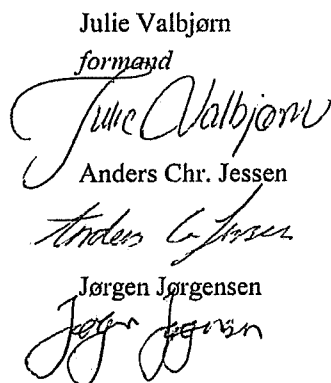 Julie Valbjørn
formand
Julie Valbjørn
Anders Chr. Jessen
Anders C Jessen
Jørgen Jørgensen
Jørgen Jørgensen